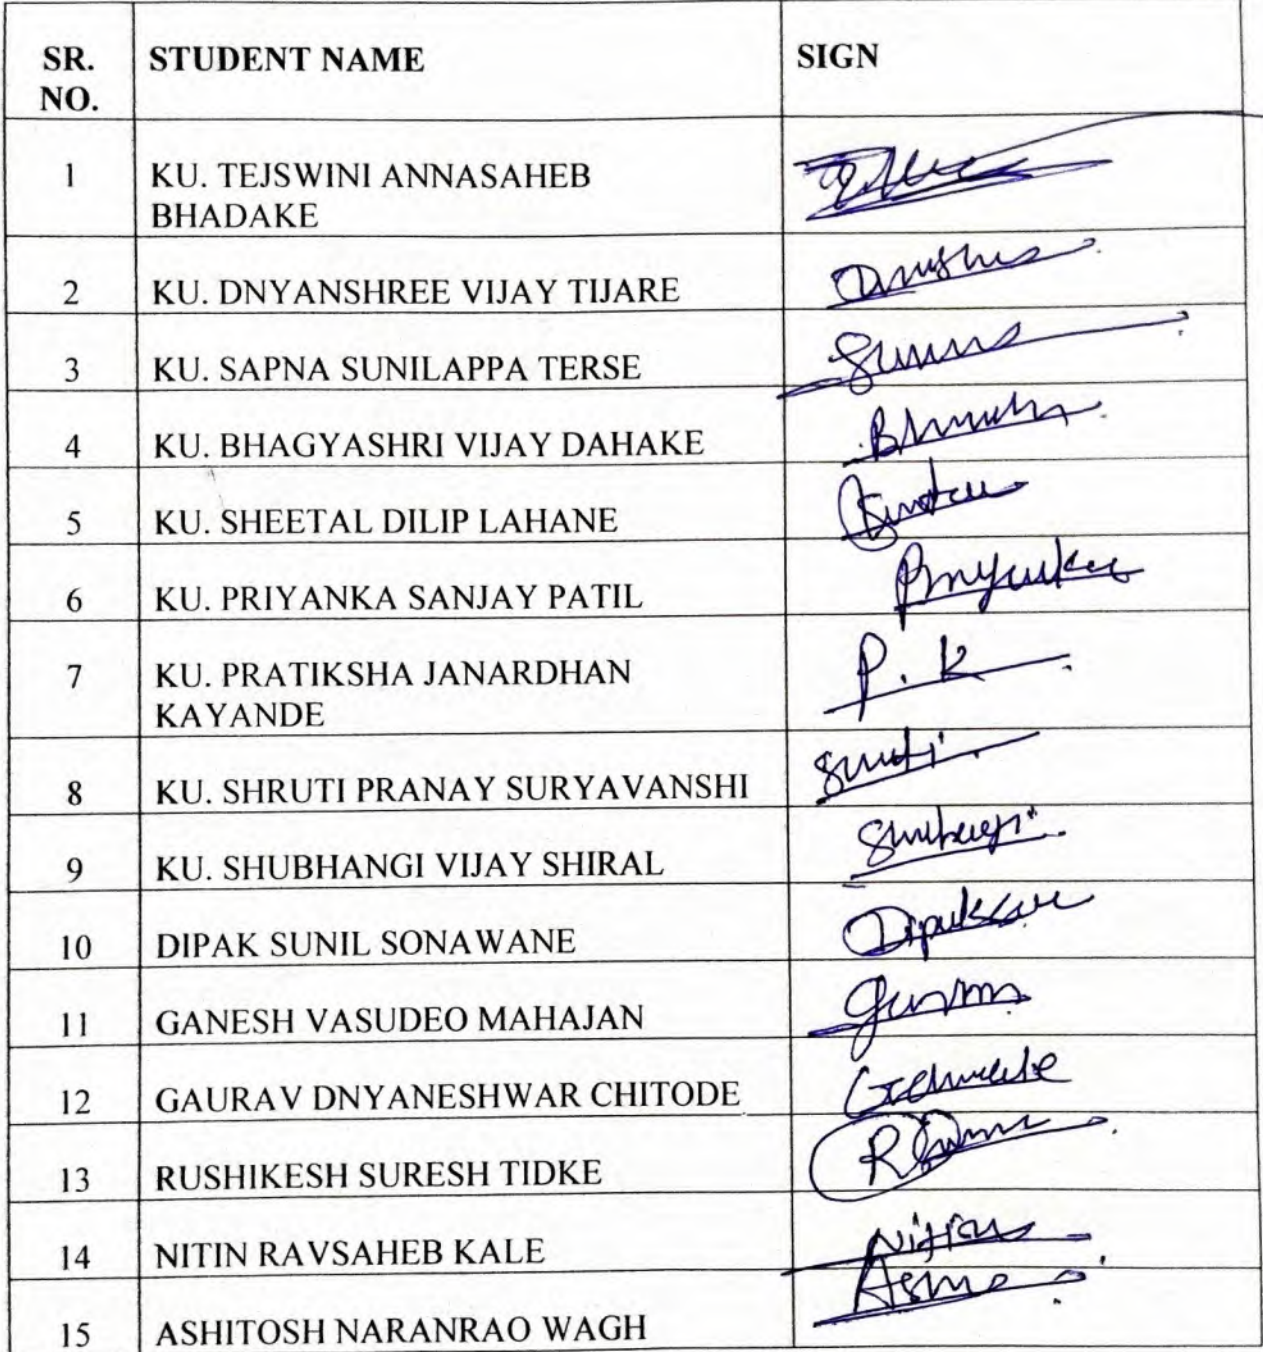 SR. NO. STUDENT NAME SIGN
1 KU. TEJSWINI ANNASAHEB
BHADAKE
2 KU. DNYANSHREE VIJAY TIJARE
3 KU. SAPNA SUNILAPPA TERSE
4 KU. BHAGYASHRI VIJAY DAHAKE
5 KU. SHEETAL DILIP LAHANE
6 KU. PRIYANKA SANJAY PATIL
7 KU. PRATIKSHA JANARDHAN P. K
KAYANDE
8 KU. SHRUTI PRANAY SURYAVANSHI
9 KU. SHUBHANGI VIJAY SHIRAL
10 DIPAK SUNIL SONAWANE
11 GANESH VASUDEO MAHAJAN
12 GAURAV DNYANESHWAR CHITODE
13 RUSHIKESH SURESH TIDKE
14 NITIN RAVSAHEB KALE
15 ASHITOSH NARANRAO WAGH